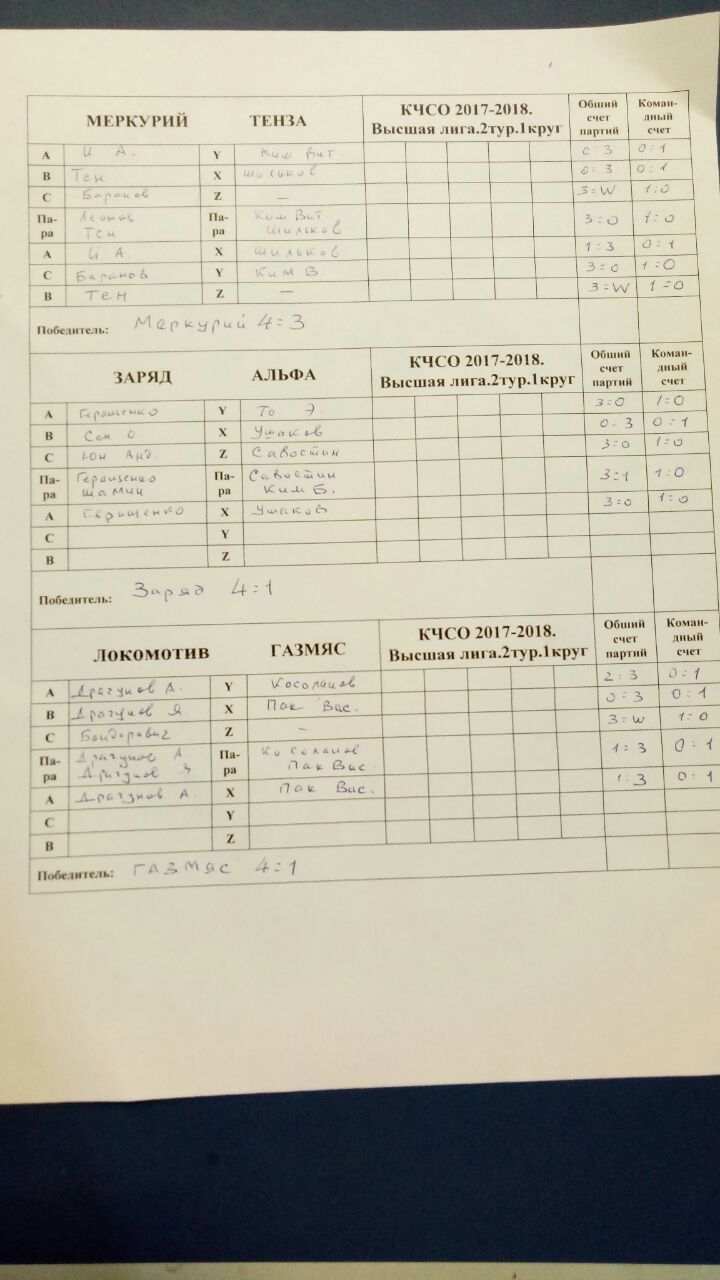 МЕРКУРИЙ ТЕНЗА КЧСО 2017-2018. Высшая лига.2тур.1круг Общий счет партий Коман-дный счет
А И А. Y Ким Вит. 0:3 0:1
В Тен X Шильков 0:3 0:1
С Баранов Z — 3=W 1:0
Па-ра Леонов Тен Па-ра Ким Вит Шильков 3=0 1=0
А И А. X Шильков 1:3 0:1
С Баранов Y Ким В 3=0 1=0
В Тен Z — 3=W 1=0
Победитель: Меркурий 4=3
ЗАРЯД АЛЬФА КЧСО 2017-2018. Высшая лига.2тур.1круг Общий счет партий Коман-дный счет
А Геращенко Y То Э 3=0 1=0
В Сен О X Ушаков 0:3 0:1
С Юн Анд. Z Савостин 3=0 1=0
Па-ра Геращенко Шамин Па-ра Савостин Ким Б. 3=1 1=0
А Геращенко X Ушаков 3=0 1=0
С Y
В Z
Победитель: Заряд 4=1
ЛОКОМОТИВ ГАЗМЯС КЧСО 2017-2018. Высшая лига.2тур.1круг Общий счет партий Коман-дный счет
А Драгунов А. Y Косолапов 2:3 0:1
В Драгунов Я X Пак Вас. 0=3 0:1
С Бондорович Z — 3=W 1:0
Па-ра Драгунов А Драгунов Я Па-ра Косолапов Пак Вас. 1:3 0:1
А Драгунов А. X Пак Вас. 1:3 0:1
С Y
В Z
Победитель: ГАЗМЯС 4=1